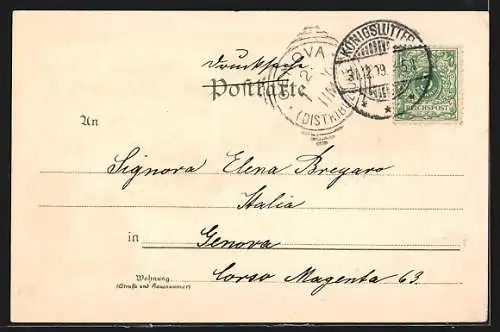 Drucksache
Postkarte
KÖNIGSLUTTER
OVA
(DISTRI
REICHSPOST
An
Signora Elena Bregaro
Italia
in Genova
Wohnung
(Straße und Hausnummer)
Corso Magenta 63.